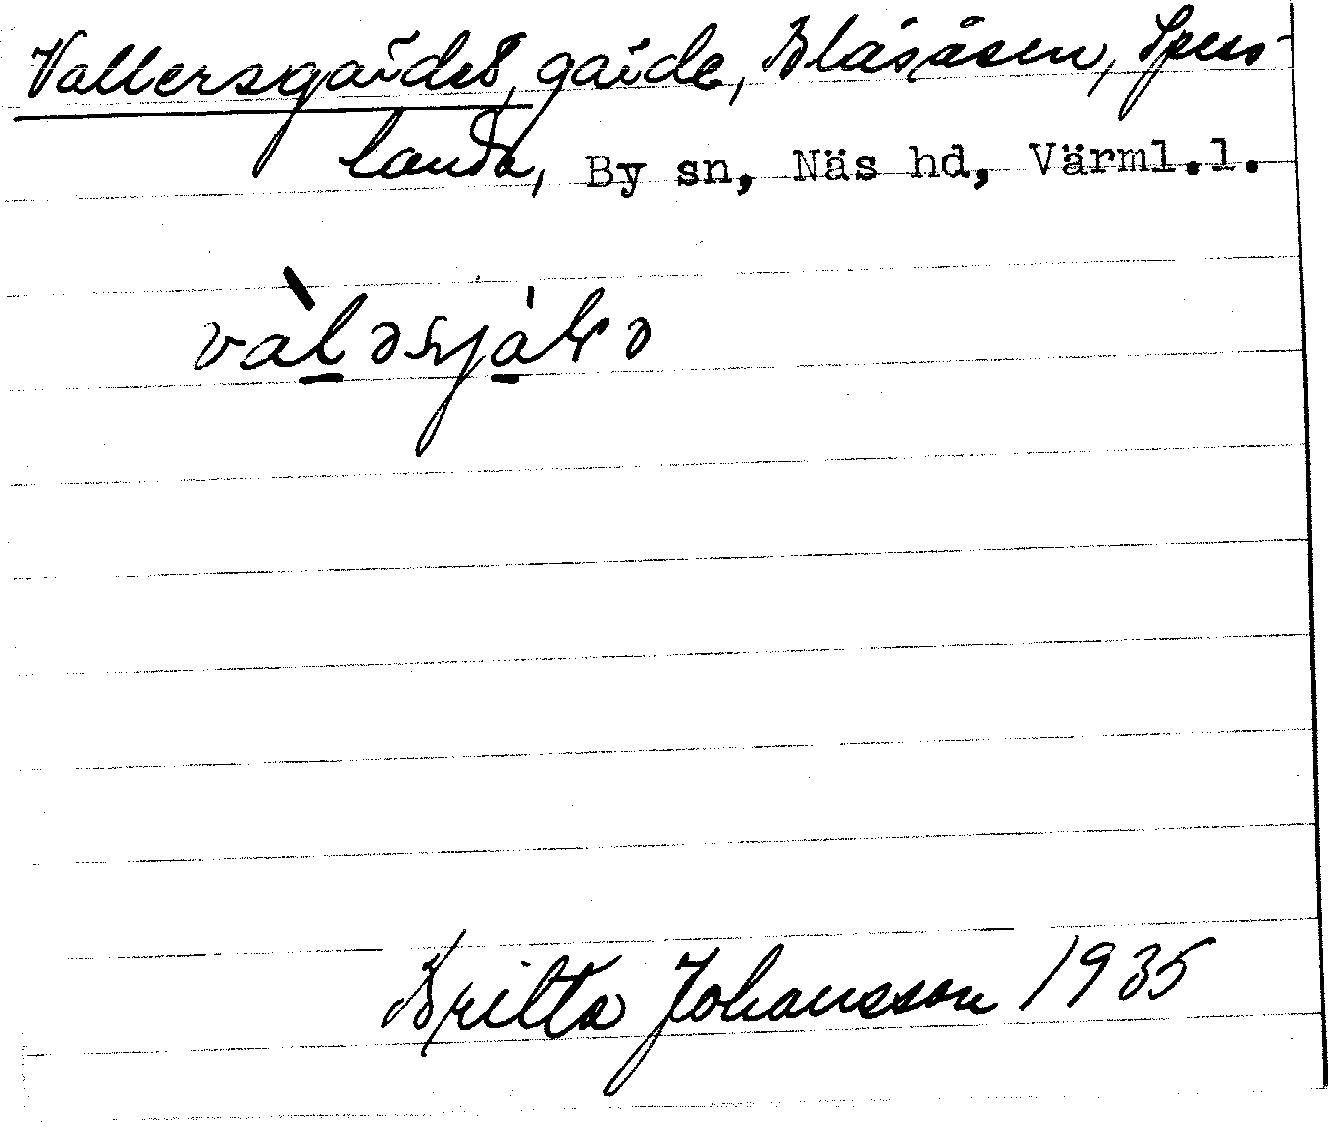 Vallersgärdet, gärde, Blåsåsen, Spess-
landa, By sn, Näs hd, Värml.l.
Britta Johansson 1935